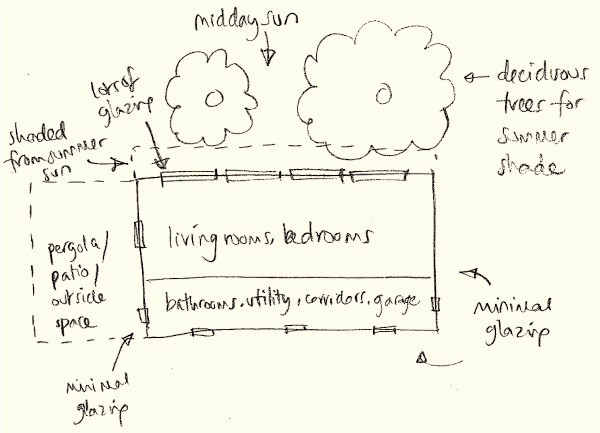 midday sun
lots of
glazing
deciduous
trees for
summer
shade
shaded
from summer
sun
living rooms, bedrooms
pergola/
patio/
outside
space
bathrooms, utility, corridors, garage
minimal
glazing
minimal
glazing